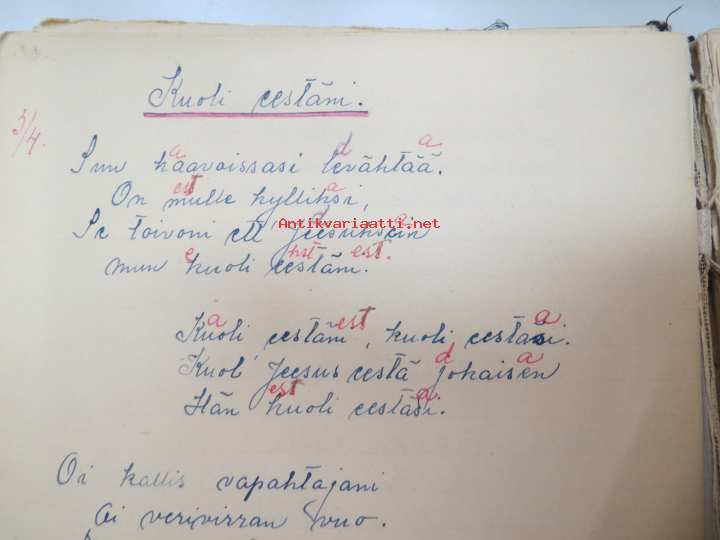 Kuoli eestäni.
3/4.
a d a
Sun haavoissasi levähtää.
est a
On mulle kylliksi,
Antikvariaatti.net
Se toivoni ett' Jeesuksein
e hst est.
mun kuoli eestäni.
a est a
Kuoli eestäni, kuoli eestäsi.
d a
Kuol' Jeesus eestä jokaisen
est a
Hän kuoli eestäsi.
Oi kallis vapahtajani
Oi verivirran vuo.